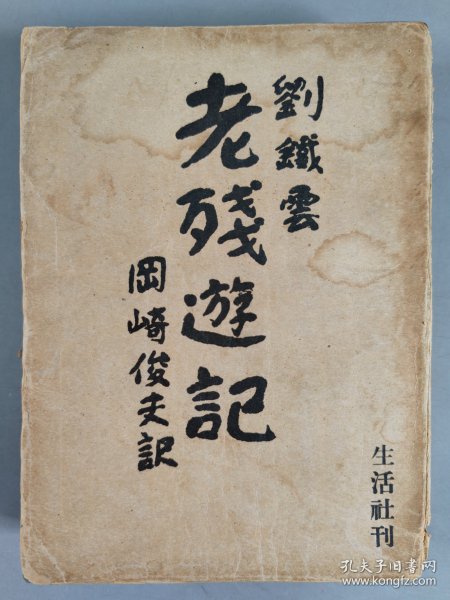 劉鐵雲
老残遊記
岡崎俊夫訳
生活社刊
孔夫子旧书网
www.kongfz.com